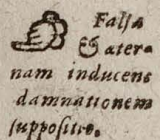 Falſa
& æter
nam inducens
damnationem
ſuppoſitio.